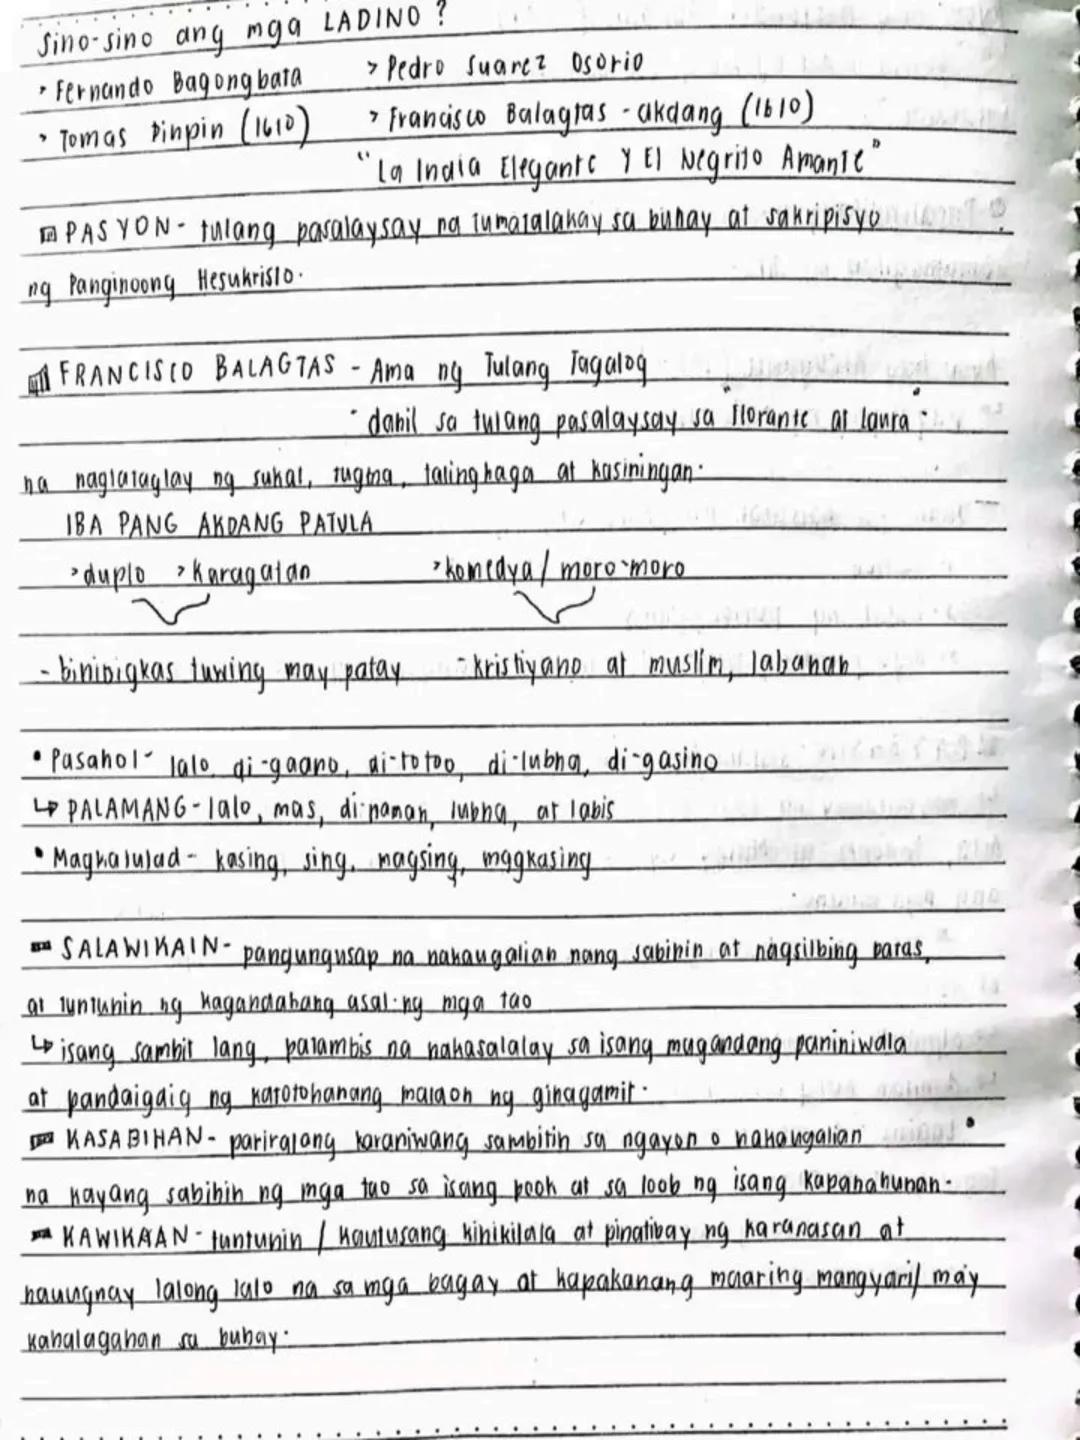 Sino-sino ang mga LADINO?
> Fernando Bagongbata > Pedro Suarez Osorio
> Tomas Pinpin (1610) > Francisco Balagtas - akdang (1610)
"La India Elegante Y El Negrito Amante"
PASYON - tulang pasalaysay na tumatalakay sa buhay at sakripisyo
ng Panginoong Hesukristo.
FRANCISCO BALAGTAS - Ama ng Tulang Tagalog
- dahil sa tulang pasalaysay sa "Florante at Laura"
na naglalaglay ng sukat, tugma, talinghaga at kasiningan.
IBA PANG AKDANG PATULA
> duplo > karagatan > komedya / moro-moro
- binibigkas tuwing may patay - kristiyano at muslim, labanan
• Pasahol - lalo, di-gaano, di-totoo, di-lubha, di-gasino
↳ PALAMANG - lalo, mas, di-naman, lubha, at labis
• Magkatulad - kasing, sing, magsing, magkasing
SALAWIKAIN - pangungusap na nakaugalian nang sabihin at nagsilbing batas,
at tuntunin ng kagandahang asal ng mga tao
↳ isang sambit lang, patambis na nakasalalay sa isang magandang paniniwala
at pandaigdig ng katotohanang malaon ng ginagamit.
KASABIHAN - pariralang karaniwang sambitin sa ngayon o nakaugalian
na kayang sabihin ng mga tao sa isang pook at sa loob ng isang kapanahunan.
KAWIKAAN - tuntunin / kautusang kinikilala at pinatibay ng karanasan at
nauugnay lalong lalo na sa mga bagay at kapakanang maaring mangyari/ may
kahalagahan sa buhay.